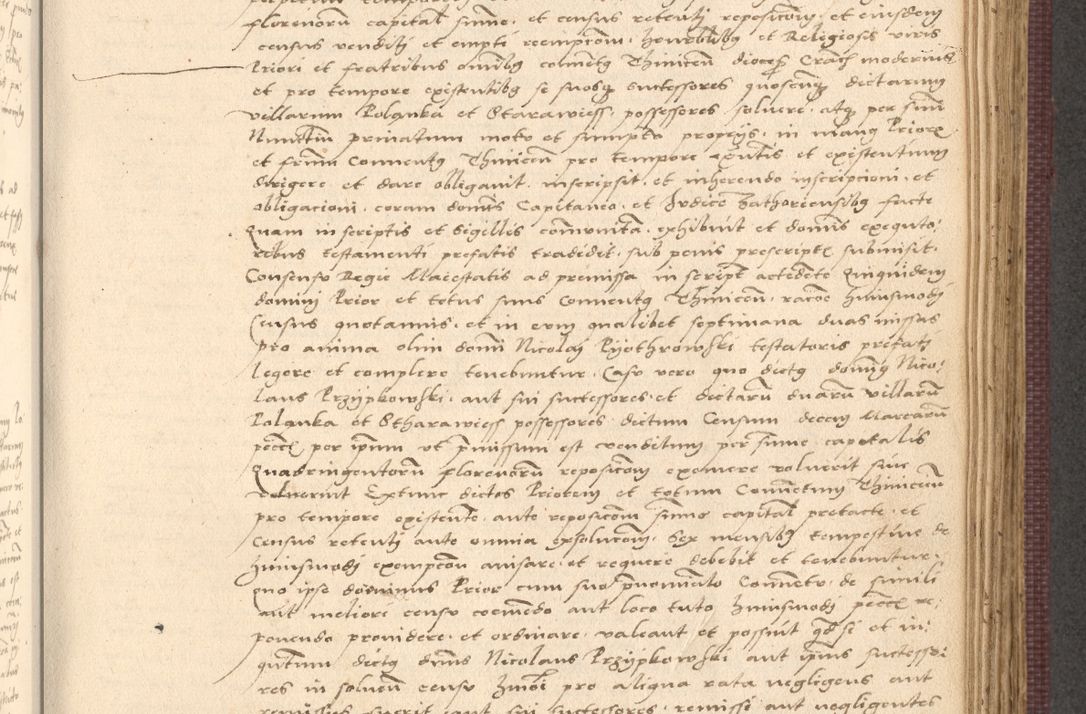 florenorum capital sume et census retenti reposicom et eiusdem
census venditi et empti reempcom. honorblibq et Religiosis viris
Priori et fratribus omibq conuetq Thinicen dioces Crac modernis
et pro tempore existentibq se suosq successores quoscunq dictarum
villarum Polanka et Stharawiess possessores soluere atq per suu
Nunctiu priuatum motu et sumptu proprys in manq Prior
et frum Conuentq Thinicen pro tempore et existentium
dirigere et dare obligauit inscripsit et inherendo inscripcioni et
obligacioni coram domis Capitaneo et Judice Zathoriensibq facte
quam in scriptis et Sigillis comunita exhibuit et domis exequto
ribus testamenti prefatis tradidit sub penis prescript submisit
Consensu Regie Maiestatis ad premissa in script accedete Quiquidem
domini Prior et totus suus Conuentq Thinicen racoe huiusmodi
Census quotannis et in euu qualibet septimana duas missas
pro anima olim domi Nicolai Pyothrowski testatoris prefati
legere et complere tenebuntur Casu vero quo dictq dominq Nico
laus Przypkowski aut sui successores et dictaru duaru villaru
Polanka et Stharawiess possessores dictum Censum decem Marcaru
pecce per ipsum vt pmissum est venditum per sume capitalis
Quadringentoru florenoru reposicom exemere voluerit siue
voluerint Extunc dictos Priorem et totum Conuetum Thinicen
pro tempore existente ante reposicom sume capital pretacte et
census retenti ante omnia exsolucom Sex mensibq tempestiue de
huiusmodi exempcou auisare et requere debebit et tenebuntur
quo ipse dominus Prior cum suo puominato Conuetu de simili
aut meliori censu coemendo aut loco tuto huiusmodi pecce re
ponendo prouidere et ordinare valeant et possint qd si et in
quatum dictq dnus Nicolaus Przypkowski aut ipius successo
res in soluen censu hmoi pro aliqua rata negligens aut
remissus fuerit aut sui successores remissi aut negligentes